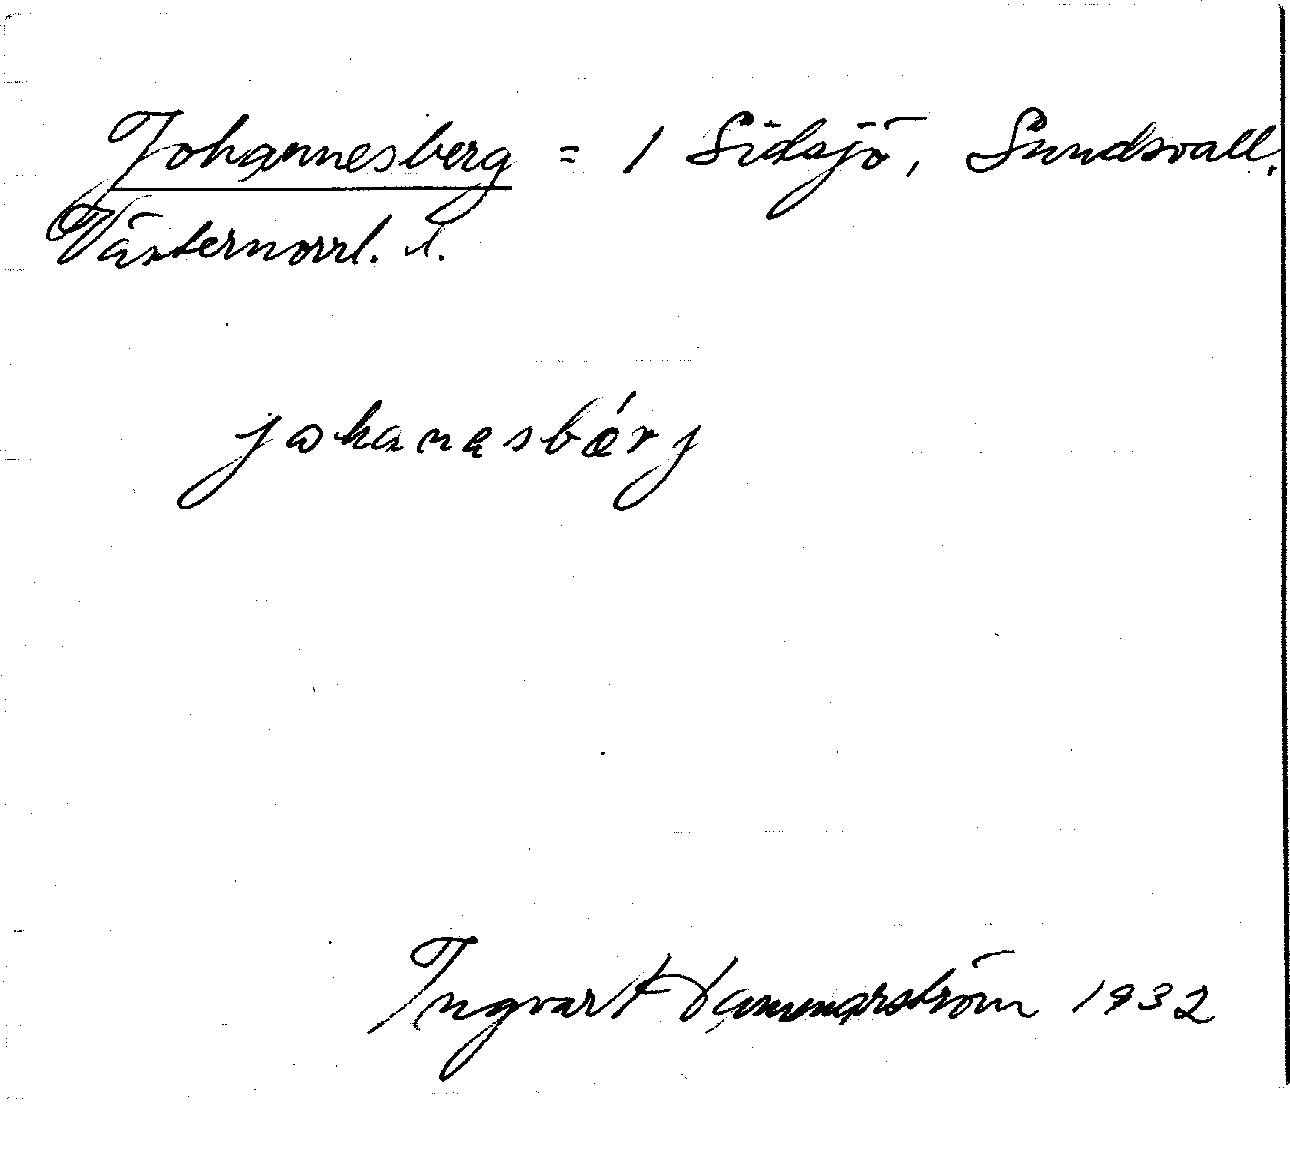 Johannesberg = 1 Sidsjö, Sundsvall.
Västernorrl. l.
johanasbǽrj
Ingvar Hammarström 1932